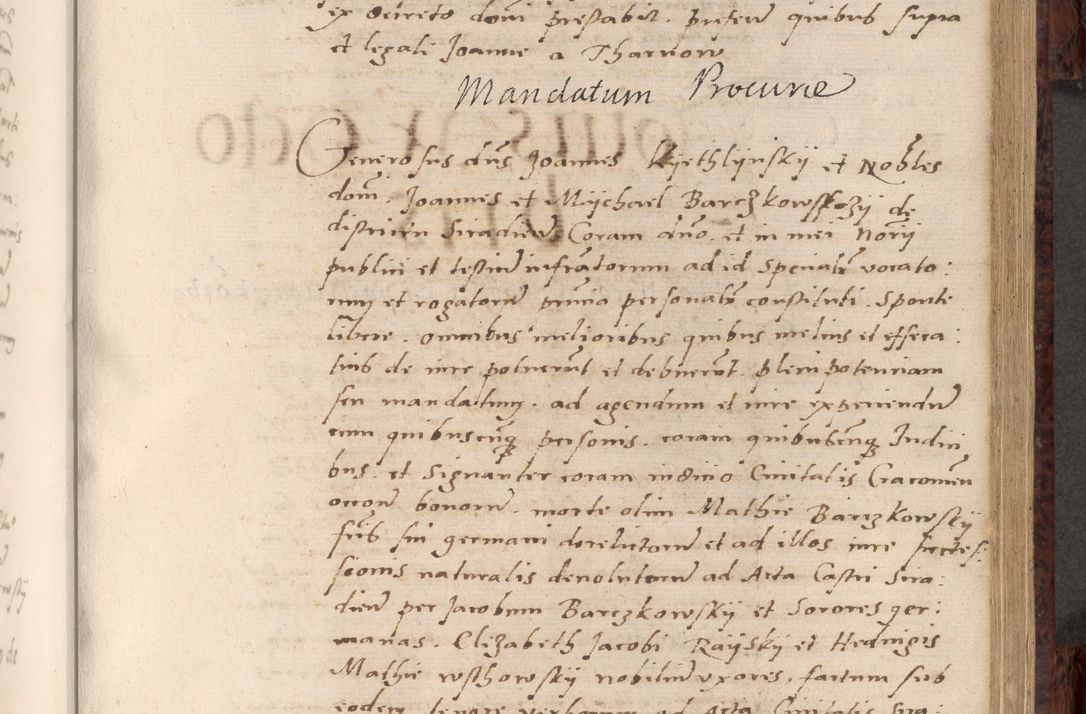 ex decreto dom̃ prestabit. presen̄ quibus supra
et legali Joanne a Tharnow
Mandatum Procurie
Generosus dñs Joannes Kyethlynskÿ et Nobles
dom̃. Joannes et Mÿchael Barczkowsskÿ de
districtu Siradien̄. Coram dño. et in mei Norÿ
publici et testiū infra̅torum ad id specialr̄ vocato:
rum et rogatorū prn̄cia personalr̄ constituti. Sponte
libere. omnibus melioribus quibus melius et effica:
tius de iure potuerūt et debuerūt. plenipotenciam
seu mandatum. ad agendum et iure experiendū
cum quibuscunq personis. coram quibuscunq Iudici
bus. et signanter coram iudicio Ciuitatis Cracouien̄
occon̄e bonorū. morte olim Mathie Barczkowskÿ
frīs sui germani derelictorū et ad illos iure succes:
sionis naturalis deuolutorū ad Acta Castri Sira:
dien̄ per Jacobum Barczkowskÿ et Sorores ger:
manas. Elizabeth Jacobi Raÿskÿ et Heduigis
Mathie wsthowskÿ nobiliū vxores, factum sub
eodem tenore verborum ad Acta Ciuitatis Sira: